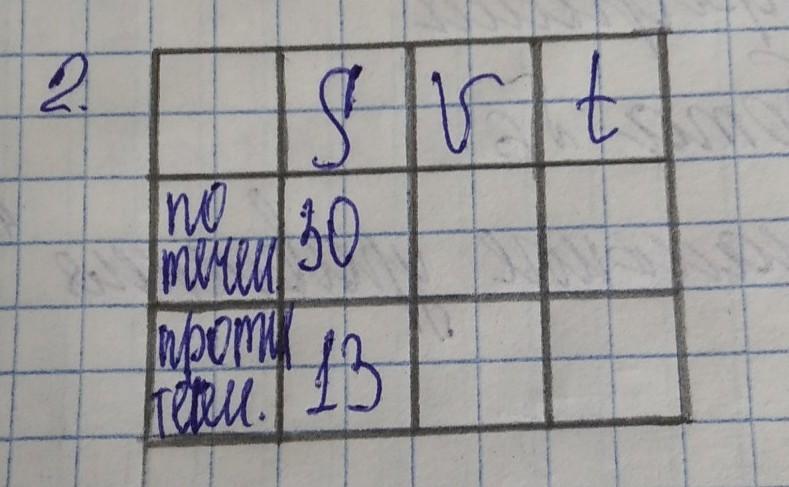 2.
S V t
по течен. 30
проти течен. 13